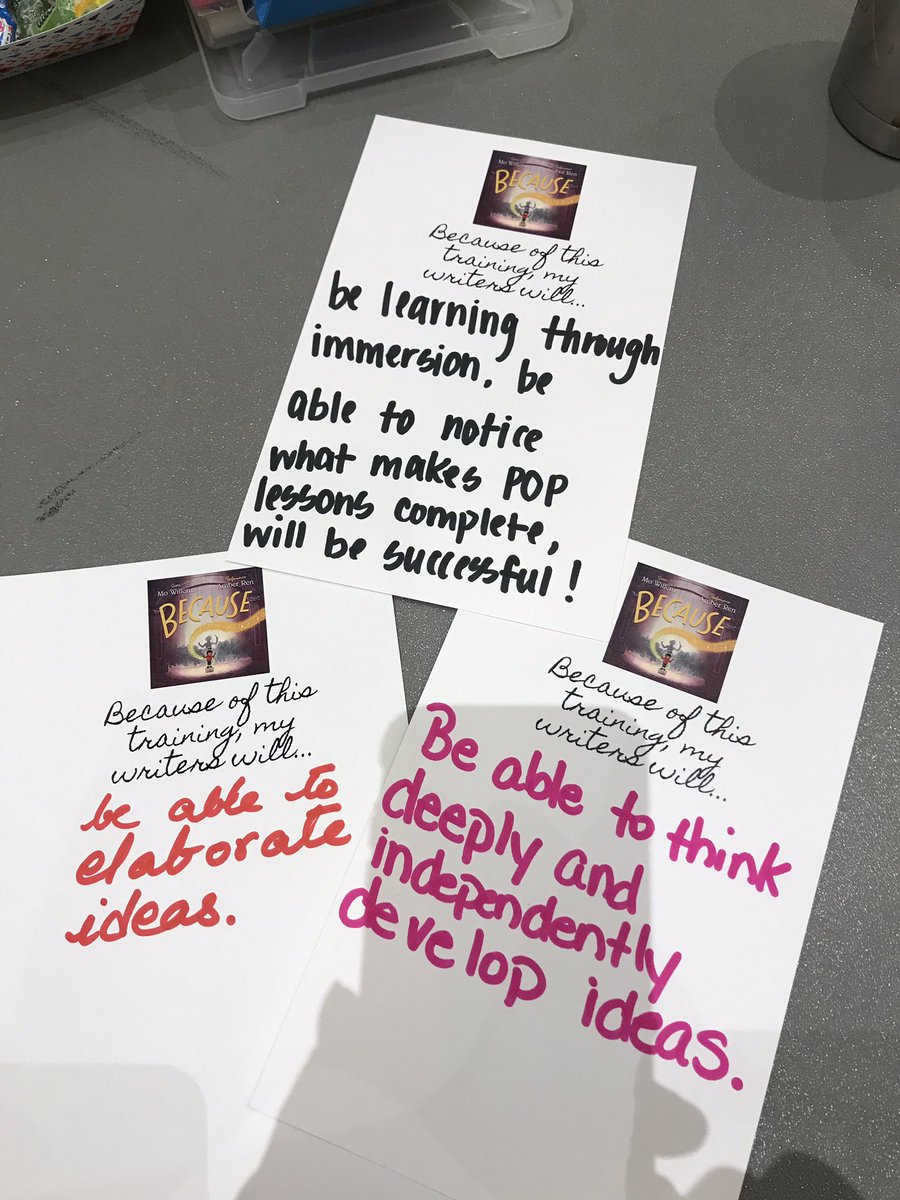 Mo Will
ber Ren
BECAUSE
Because of this
training, my
writers will...
be learning through
immersion. be
able to notice
what makes POP
lessons complete,
will be successful!
Mo Willems
Amber Ren
BECAUSE
Because of this
training, my
writers will...
be able to
elaborate
ideas.
Mo Willems
Amber Ren
BECAUSE
Because of this
training, my
writers will...
Be able to think
deeply and
independently
develop ideas.